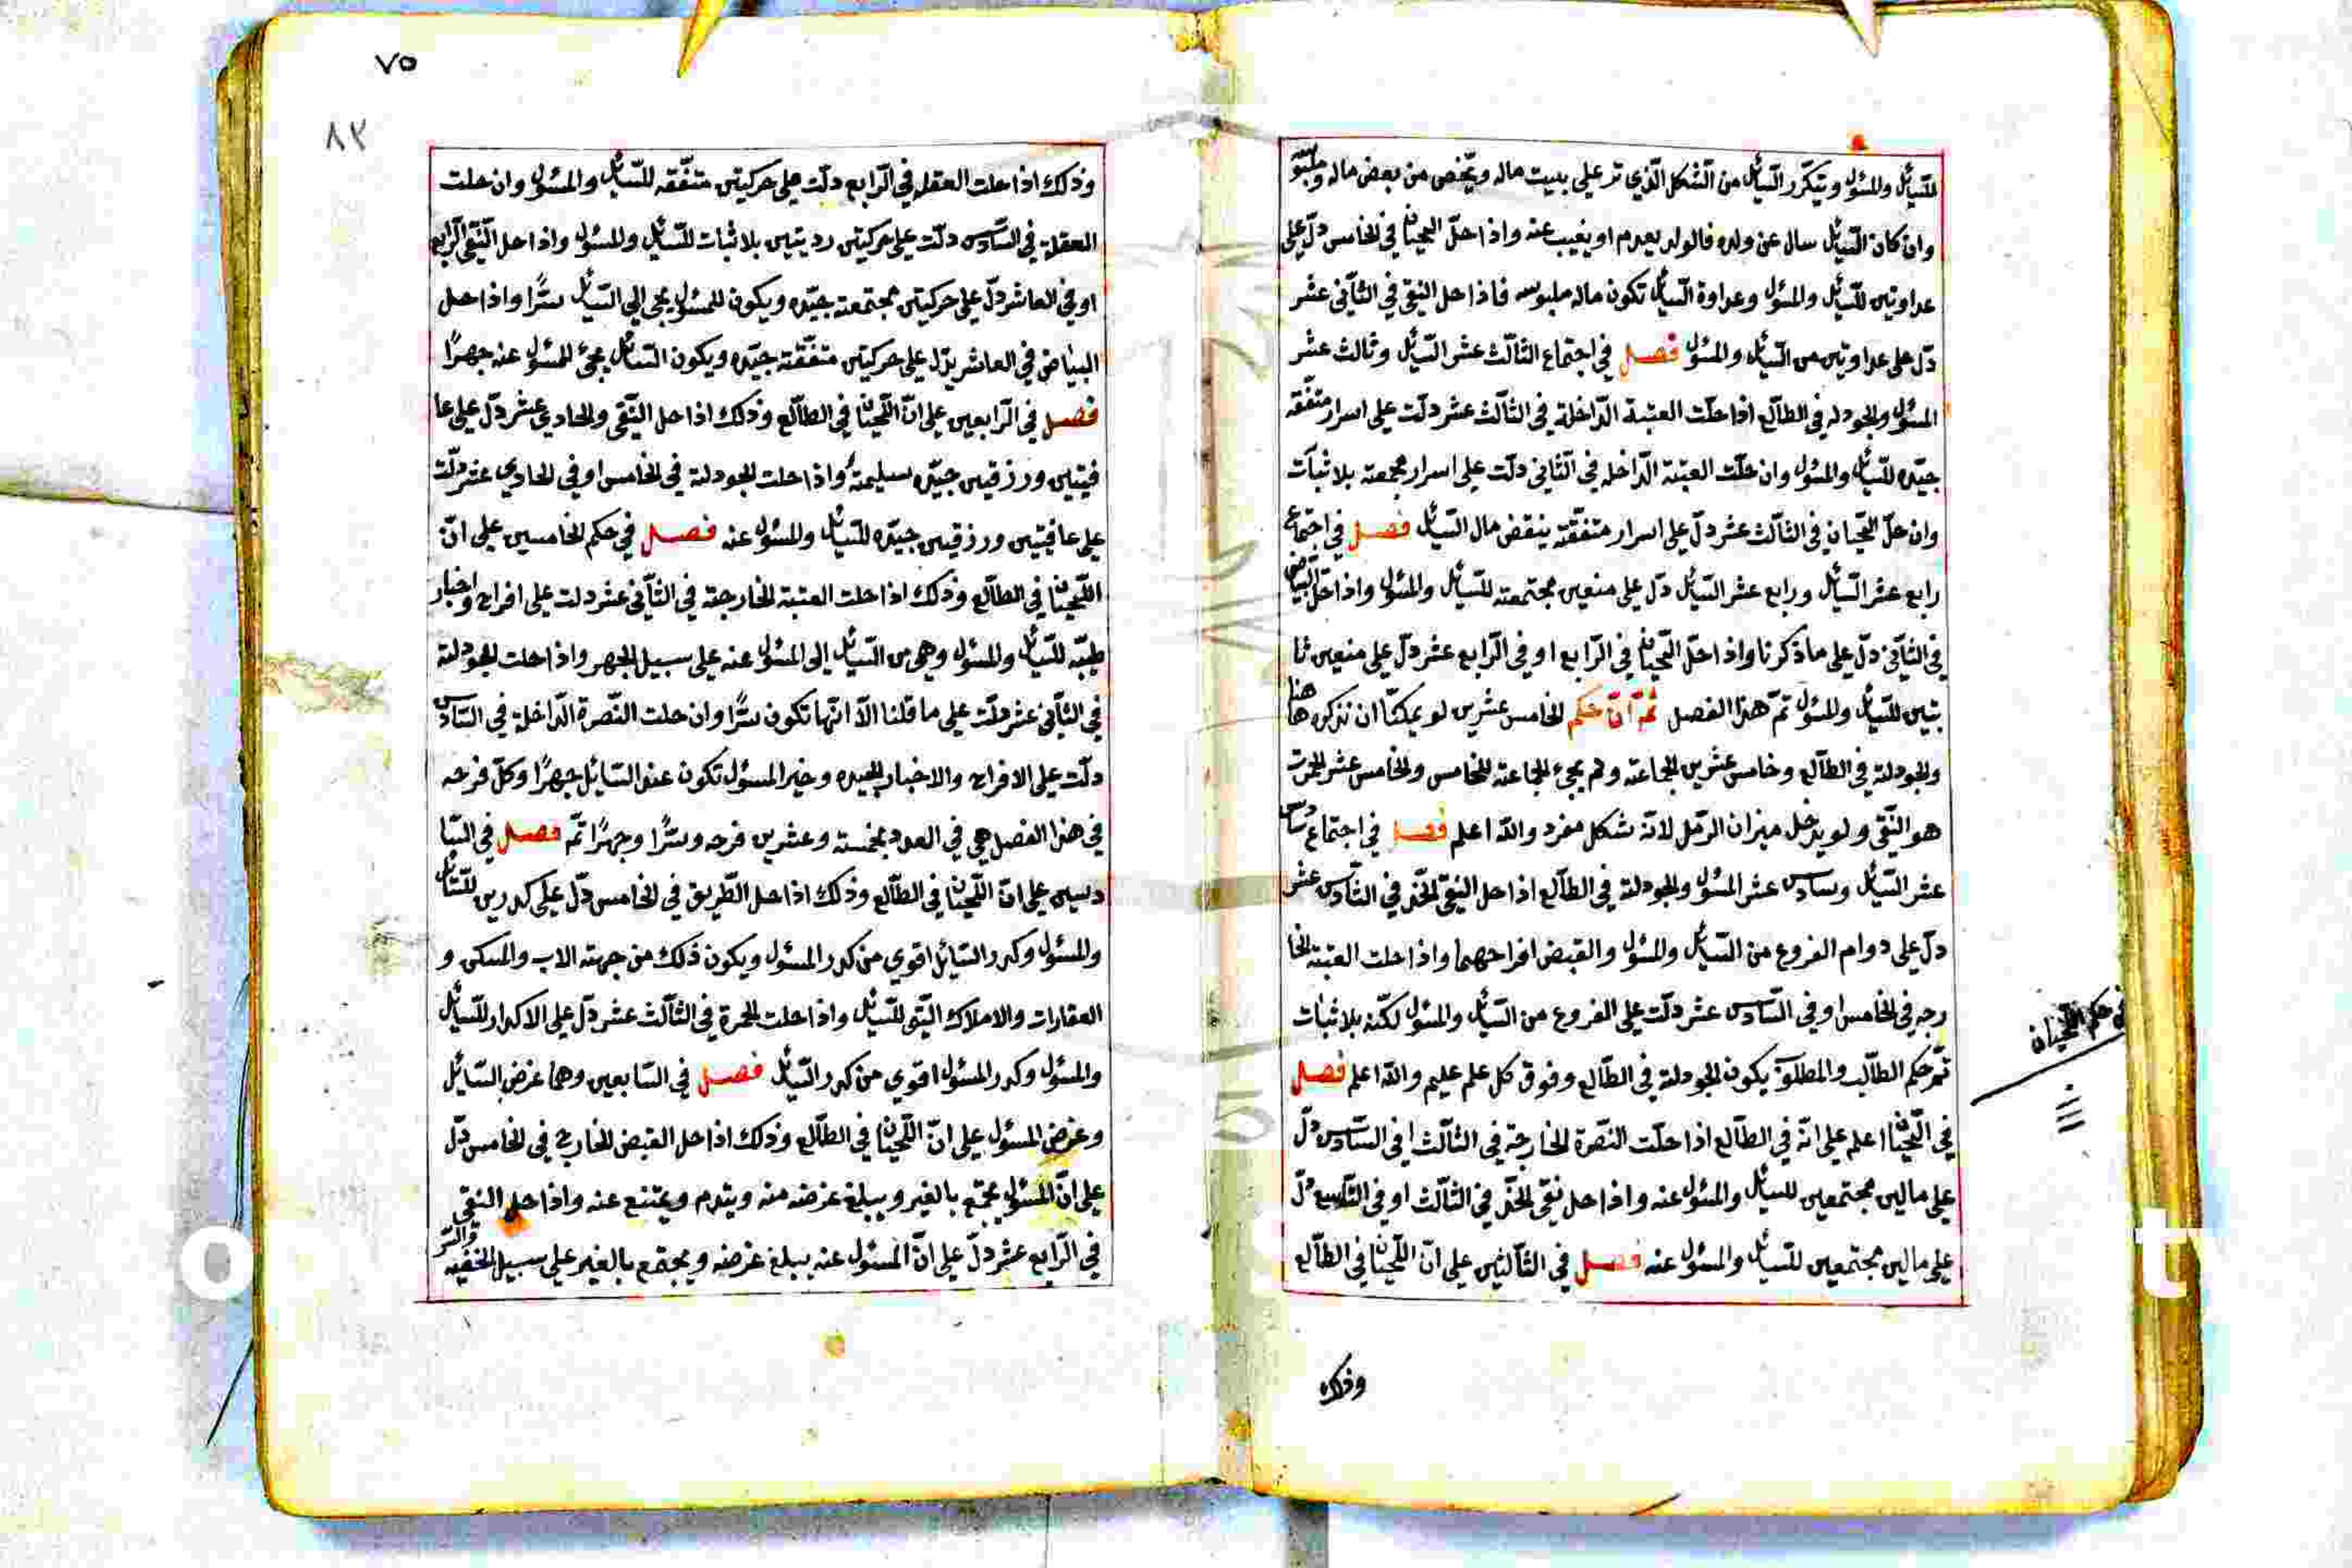 للسّائل والمسئول ويتكرّر السّائل من الشكل الّذي تر علي بيت ماله ويخص من بعض ماله وملبو
وان كان السّائل سال عن ولده فالولد يعدم او يغيب عنه واذا حلّ اللّحيان في الخامس دلّ علي
عداوتين للسّائل والمسئول وعداوة السّائل تكون ماله ملبوسه فاذا حل النقي في الثاني عشر
دلّ علي عداوتين من السّائل والمسئول فصل في اجتماع الثالث عشر السّائل وثالث عشر
المسئول والجودله في الطالع اذا حلّت العتبة الدّاخلة في الثالث عشر دلّت علي اسرار متفّقه
جيّده للسّائل والمسئول وان حلّت العتبة الدّاخله في الثاني دلّت علي اسرار مجمعة بلا ثبات
وان حلّ اللّحيان في الثالث عشر دلّ علي اسرار متفقّة ينقض مال السّائل فصل في اجتماع
رابع عشر السّائل ورابع عشر السّائل دلّ علي منعين مجتمعة للسّائل والمسئول واذا حلّ البياض
في الثاني دلّ علي ما ذكرنا واذا حلّ اللّحيان في الرّابع او في الرّابع عشر دلّ علي منعين ثا
بتين للسّائل والمسئول تمّ هذا الفصل ثمّ انّ حكم الخامس عشرين لو يمكنّا ان نذكره هاهنا
والجودلة في الطالع وخامس عشرين الجاعة ولم يجئ الجاعة للخامس والخامس عشر الجرت
هو النّقي ولو يدخل ميزان الرّمل لانّه شكل مفرد واللّه اعلم فصل في اجتماع سادس
عشر السّائل وسادس عشر المسئول والجودلة في الطالع اذا حل النقيّ الخدّ في السّادس عشر
دلّ علي دوام الفروع من السّائل والمسئول والقبض افراحهما واذا حلت العتبة الخا
رجه في الخامس او في السّادس عشر دلّت علي الفروع من السّائل والمسئول لكنّه بلا ثبات
تمّ حكم الطالب والمطلوب يكون الجودلة في الطالع وفوق كل علم عليم واللّه اعلم فصل
في اللّحيان اعلم علي انّه في الطالع اذا حلّت النّصرة الخارجة في الثالث او في السّادس دلّ
علي مالين مجتمعين للسّائل والمسئول عنه واذا حل نقي الخدّ في الثالث او في التاسع دلّ
علي مالين مجتمعين للسّائل والمسئول عنه فصل في الثالثين علي انّ اللّحيان في الطالع
في حكم اللّحيان
وذلك
٧٥
٨٢
وذلك اذا حلت العقله في الرّابع دلّت علي حركتين متفّقه للسّائل والمسئول وان حلت
العقلة في السّادس دلّت علي حركتين رديتين بلا ثبات للسّائل والمسئول واذا حل النّقي الرّابع
او في العاشر دلّ علي حركتين مجتمعة جيّده ويكون للمسئول يجي الي السّائل سرًّا واذا حل
البياض في العاشر يدّل علي حركتين متفّقة جيّده ويكون السّائل يجئ للمسئول عنه جهرًا
فصل في الرّابعين علي انّ اللّحيان في الطالع وذلك اذا حل النّقي والحادي عشر دلّ علي عا
فيتين ورزقين جيّده سليمة واذا حلت الجودلة في الخامس او في الحادي عشر دلّت
علي عافيتين ورزقين جيّده للسّائل والمسئول عنه فصل في حكم الخامسين علي انّ
اللّحيان في الطالع وذلك اذا حلت العتبة الخارجة في الثاني عشر دلت علي افراح واخبار
طيّبه للسّائل والمسئول وهي من السّائل إلى المسئول عنه علي سبيل الجهر واذا حلت الجودلة
في الثاني عشر دلّت علي ما قلنا الاّ انّها تكون سرًّا وان حلت النّصرة الدّاخلة في السّادس
دلّت علي الافراح والاخبار الجيده وخير المسئول تكون عند السّائل جهرًا وكلّ فرحه
في هذا الفصل هي في العدد بخمسة وعشرين فرحه وسرًّا وجهرًا تمّ فصل في السّا
دسين علي انّ اللّحيان في الطالع وذلك اذا حل الطّريق في الخامس دلّ علي كدرين للسّائل
والمسئول وكدر السّائل اقوي من كدر المسئول ويكون ذلك من جهة الاب والمسكن و
العقارات والاملاك اليّتو للسّائل واذا حلت الحمرة في الثالث عشر دلّ علي الاكدار للسّائل
والمسئول وكدر المسئول اقوي من كدر السّائل فصل في السّابعين وهما غرض السّائل
وغرض المسئول علي انّ اللّحيان في الطالع وذلك اذا حل القبض الخارج في الخامس دلّ
علي انّ المسئول يجتمع بالغير ويبلغ غرضه منه ويندم ويمتنع عنه واذا حل النقي
في الرّابع عشر دلّ علي انّ المسئول عنه يبلغ غرضه ويجتمع بالغير علي سبيل الخفيه والسّر